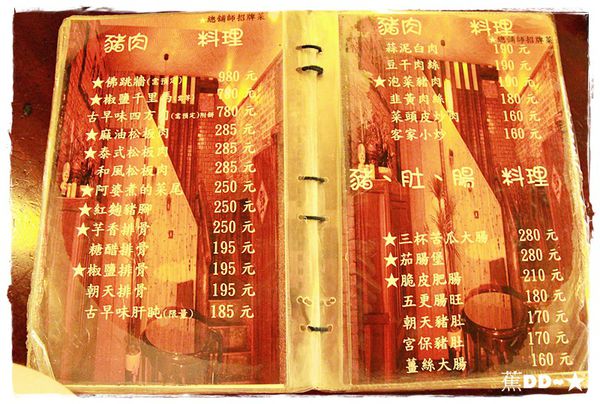 ★總鋪師招牌菜
豬肉 料理
★佛跳牆(需預定) 980 元
★椒鹽千里 780 元
古早味四方 (需預定)附餅 780 元
★麻油松板肉 285 元
★泰式松板肉 285 元
和風松板肉 285 元
★阿婆煮的菜尾 250 元
★紅麴豬腳 250 元
★芋香排骨 250 元
糖醋排骨 195 元
★椒鹽排骨 195 元
朝天排骨 195 元
古早味肝肫(限量) 185 元
★總鋪師招牌菜
豬肉 料理
蒜泥白肉 190 元
豆干肉絲 190 元
★泡菜豬肉 190 元
韭黃肉絲 180 元
菜頭皮炒肉 160 元
客家小炒 160 元
豬、肚、腸 料理
★三杯苦瓜大腸 280 元
★茄腸堡 280 元
★脆皮肥腸 210 元
五更腸旺 180 元
朝天豬肚 170 元
宮保豬肚 170 元
薑絲大腸 160 元
蕉DD~★